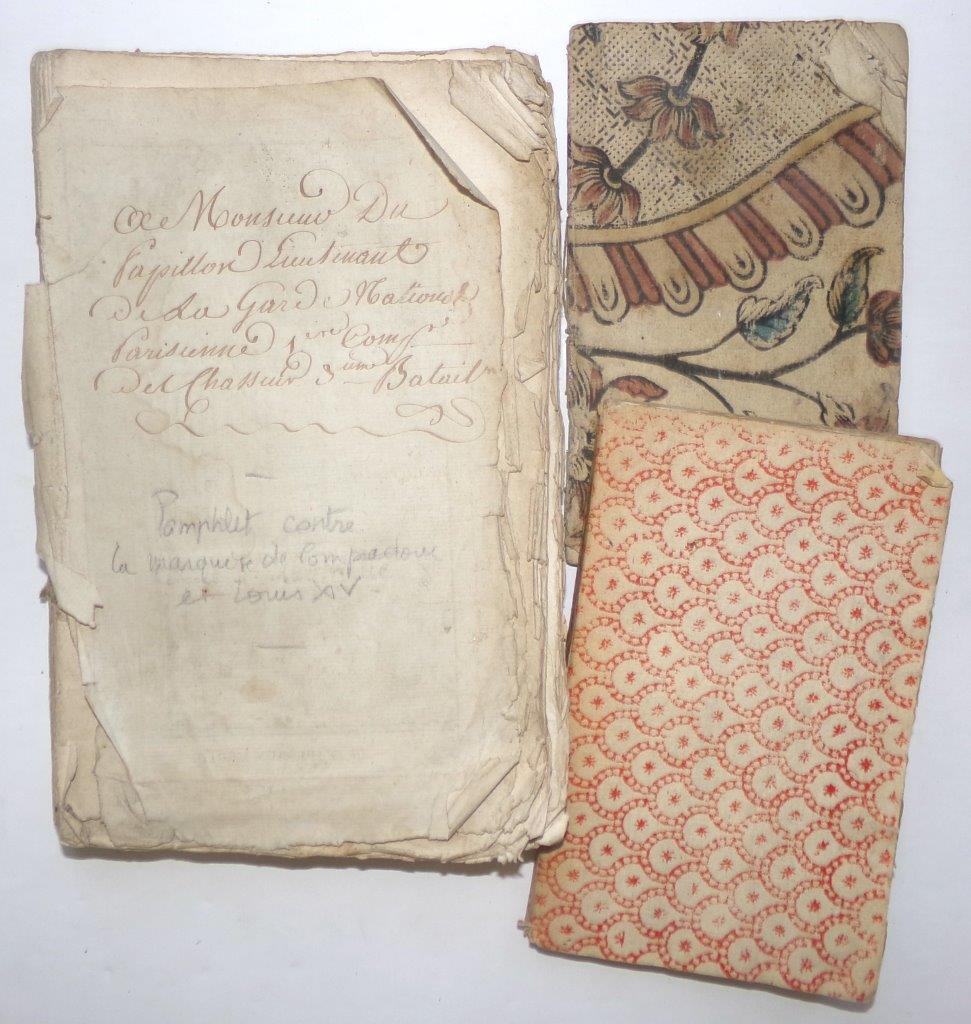 De Monsieur Du
Papillon Lieutenant
De La Garde National
Parisienne 1ere Comp
des Chasseur 3eme Batail
Pamphlet contre
la marquise de Pompadour
et Louis XV